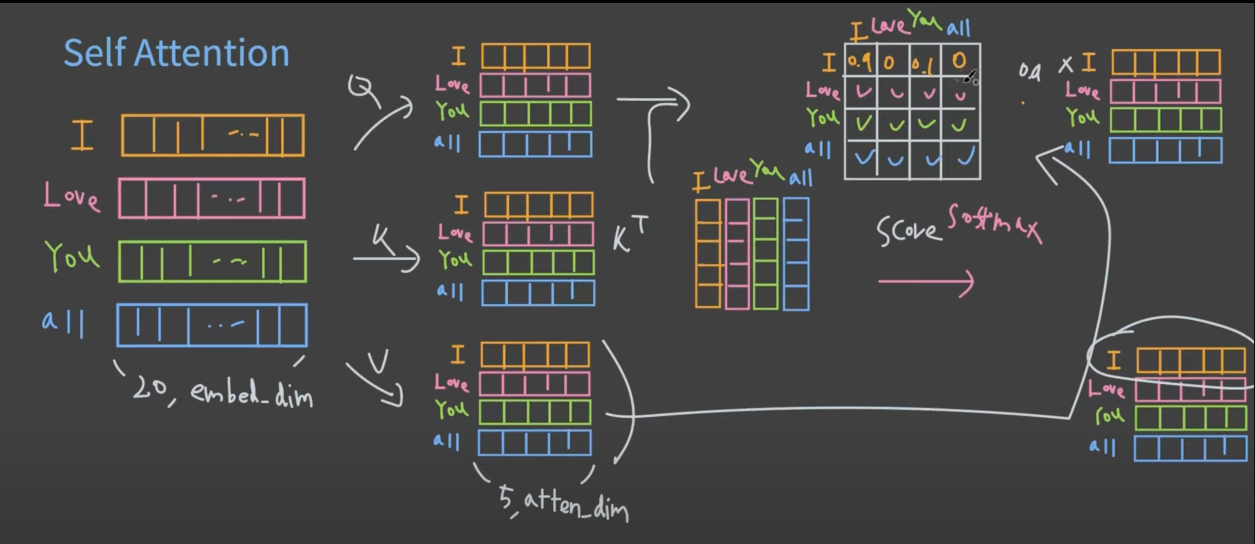 Self Attention
I
Love
You
all
20, embed_dim
Q
K
V
I
Love
You
all
I
Love
You
all
I
Love
You
all
5, atten_dim
K^T
I Love You all
I Love You all
I 0.9 0 0.1 0
Love
You
all
Score Softmax
0.9 x I
Love
You
all
I
Love
You
all